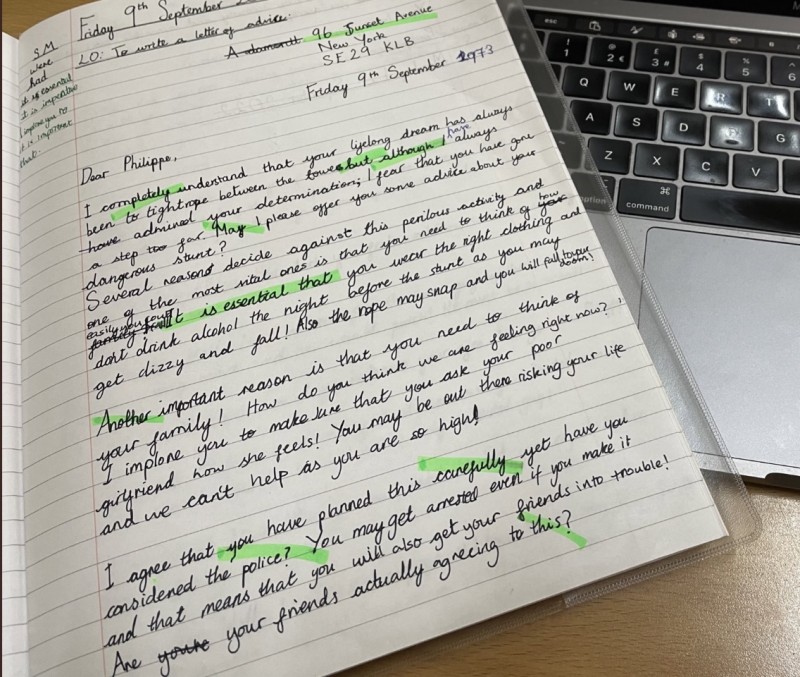 Friday 9th September
LO: To write a letter of advice.
SM
were
had
it is essential
it is imperative
I implore you to
it is important
that
96 Sunset Avenue
New York
SE29 KLB
Friday 9th September 1973
Dear Philippe,
I completely understand that your lifelong dream has always
been to tightrope between the towers but although I have always
have admired your determination, I fear that you have gone
a step too far. May I please offer you some advice about your
dangerous stunt?
Several reasons decide against this perilous activity and
one of the most vital ones is that you need to think of how
easily you could fall. It is essential that you wear the right clothing and
don't drink alcohol the night before the stunt as you may
get dizzy and fall! Also the rope may snap and you will fall to your doom!
Another important reason is that you need to think of
your family! How do you think we are feeling right now?
I implore you to make sure that you ask your poor
girlfriend how she feels! You may be out there risking your life
and we can't help as you are so high!
I agree that you have planned this carefully yet have you
considered the police? You may get arrested even if you make it
and that means that you will also get your friends into trouble!
Are you're your friends actually agreeing to this?
esc
! 1
2 €
£ 3 #
$ 4
% 5
6
Q W E R T
A S D F G
Z X C V
option
⌘ command